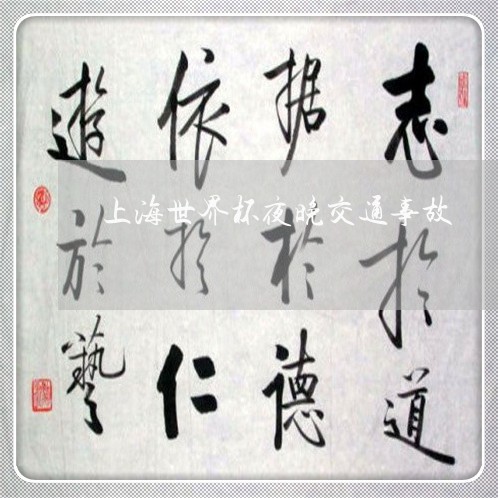 志扵道
据於德
依扵仁
遊於藝
上海世界杯夜晚交通事故